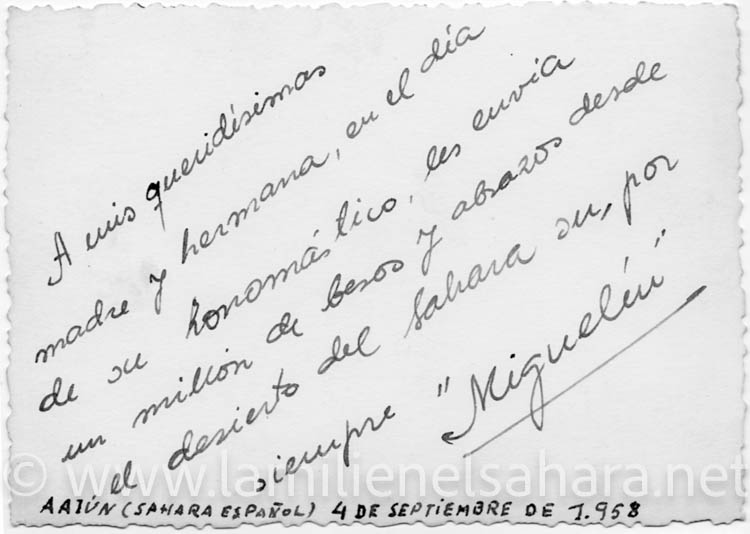 A mis queridísimas
madre y hermana, en el día
de su honomástico, les envía
un millón de besos y abrazos desde
el desierto del Sahara su, por
siempre "Miguelín"
© www.lamilienelsahara.net
AAIÚN (SAHARA ESPAÑOL) 4 DE SEPTIEMBRE DE 1.958